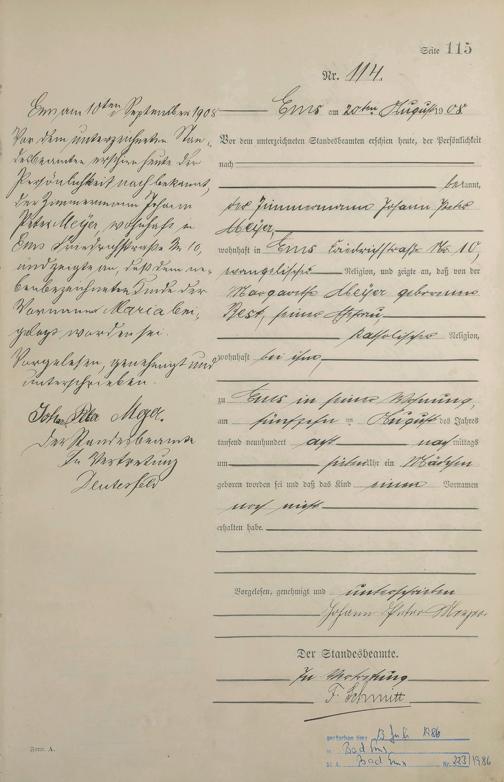 Seite 115
Nr. 114.
Ems am 10ten September 1908
Vor dem unterzeichneten Stan-
desbeamten erschien heute der
Persönlichkeit nach bekannt,
der Zimmermann Johann
Peter Meyer, wohnhaft in
Ems Friedrichstraße Nr 10,
und zeigte an, daß dem ne-
benbezeichneten Kinde der
Vorname Maria bei-
gelegt worden sei.
Vorgelesen, genehmigt und
unterschrieben.
Johann Peter Meyer.
Der Standesbeamte
In Vertretung
Ems am 20ten August 1908
Vor dem unterzeichneten Standesbeamten erschien heute, der Persönlichkeit
nach
bekannt,
der Zimmermann Johann Peter
Meyer
wohnhaft in Ems Friedrichstraße Nr. 10,
evangelischer Religion, und zeigte an, daß von der
Margaretha Meyer geborenen
Best, seiner Ehefrau
katholischer Religion,
wohnhaft bei ihm,
zu Ems in seiner Wohnung,
am fünfzehnten August des Jahres
tausend neunhundert acht nachmittags
um sieben Uhr ein Mädchen
geboren worden sei und daß das Kind einen Vornamen
noch nicht
erhalten habe.
Vorgelesen, genehmigt und unterschrieben
Johann Peter Meyer.
Der Standesbeamte.
In Vertretung
F. Schmitt
gestorben am: 13 Juli 1986
in Bad Ems
St. A. Bad Ems Nr. 223/1986
Form. A.